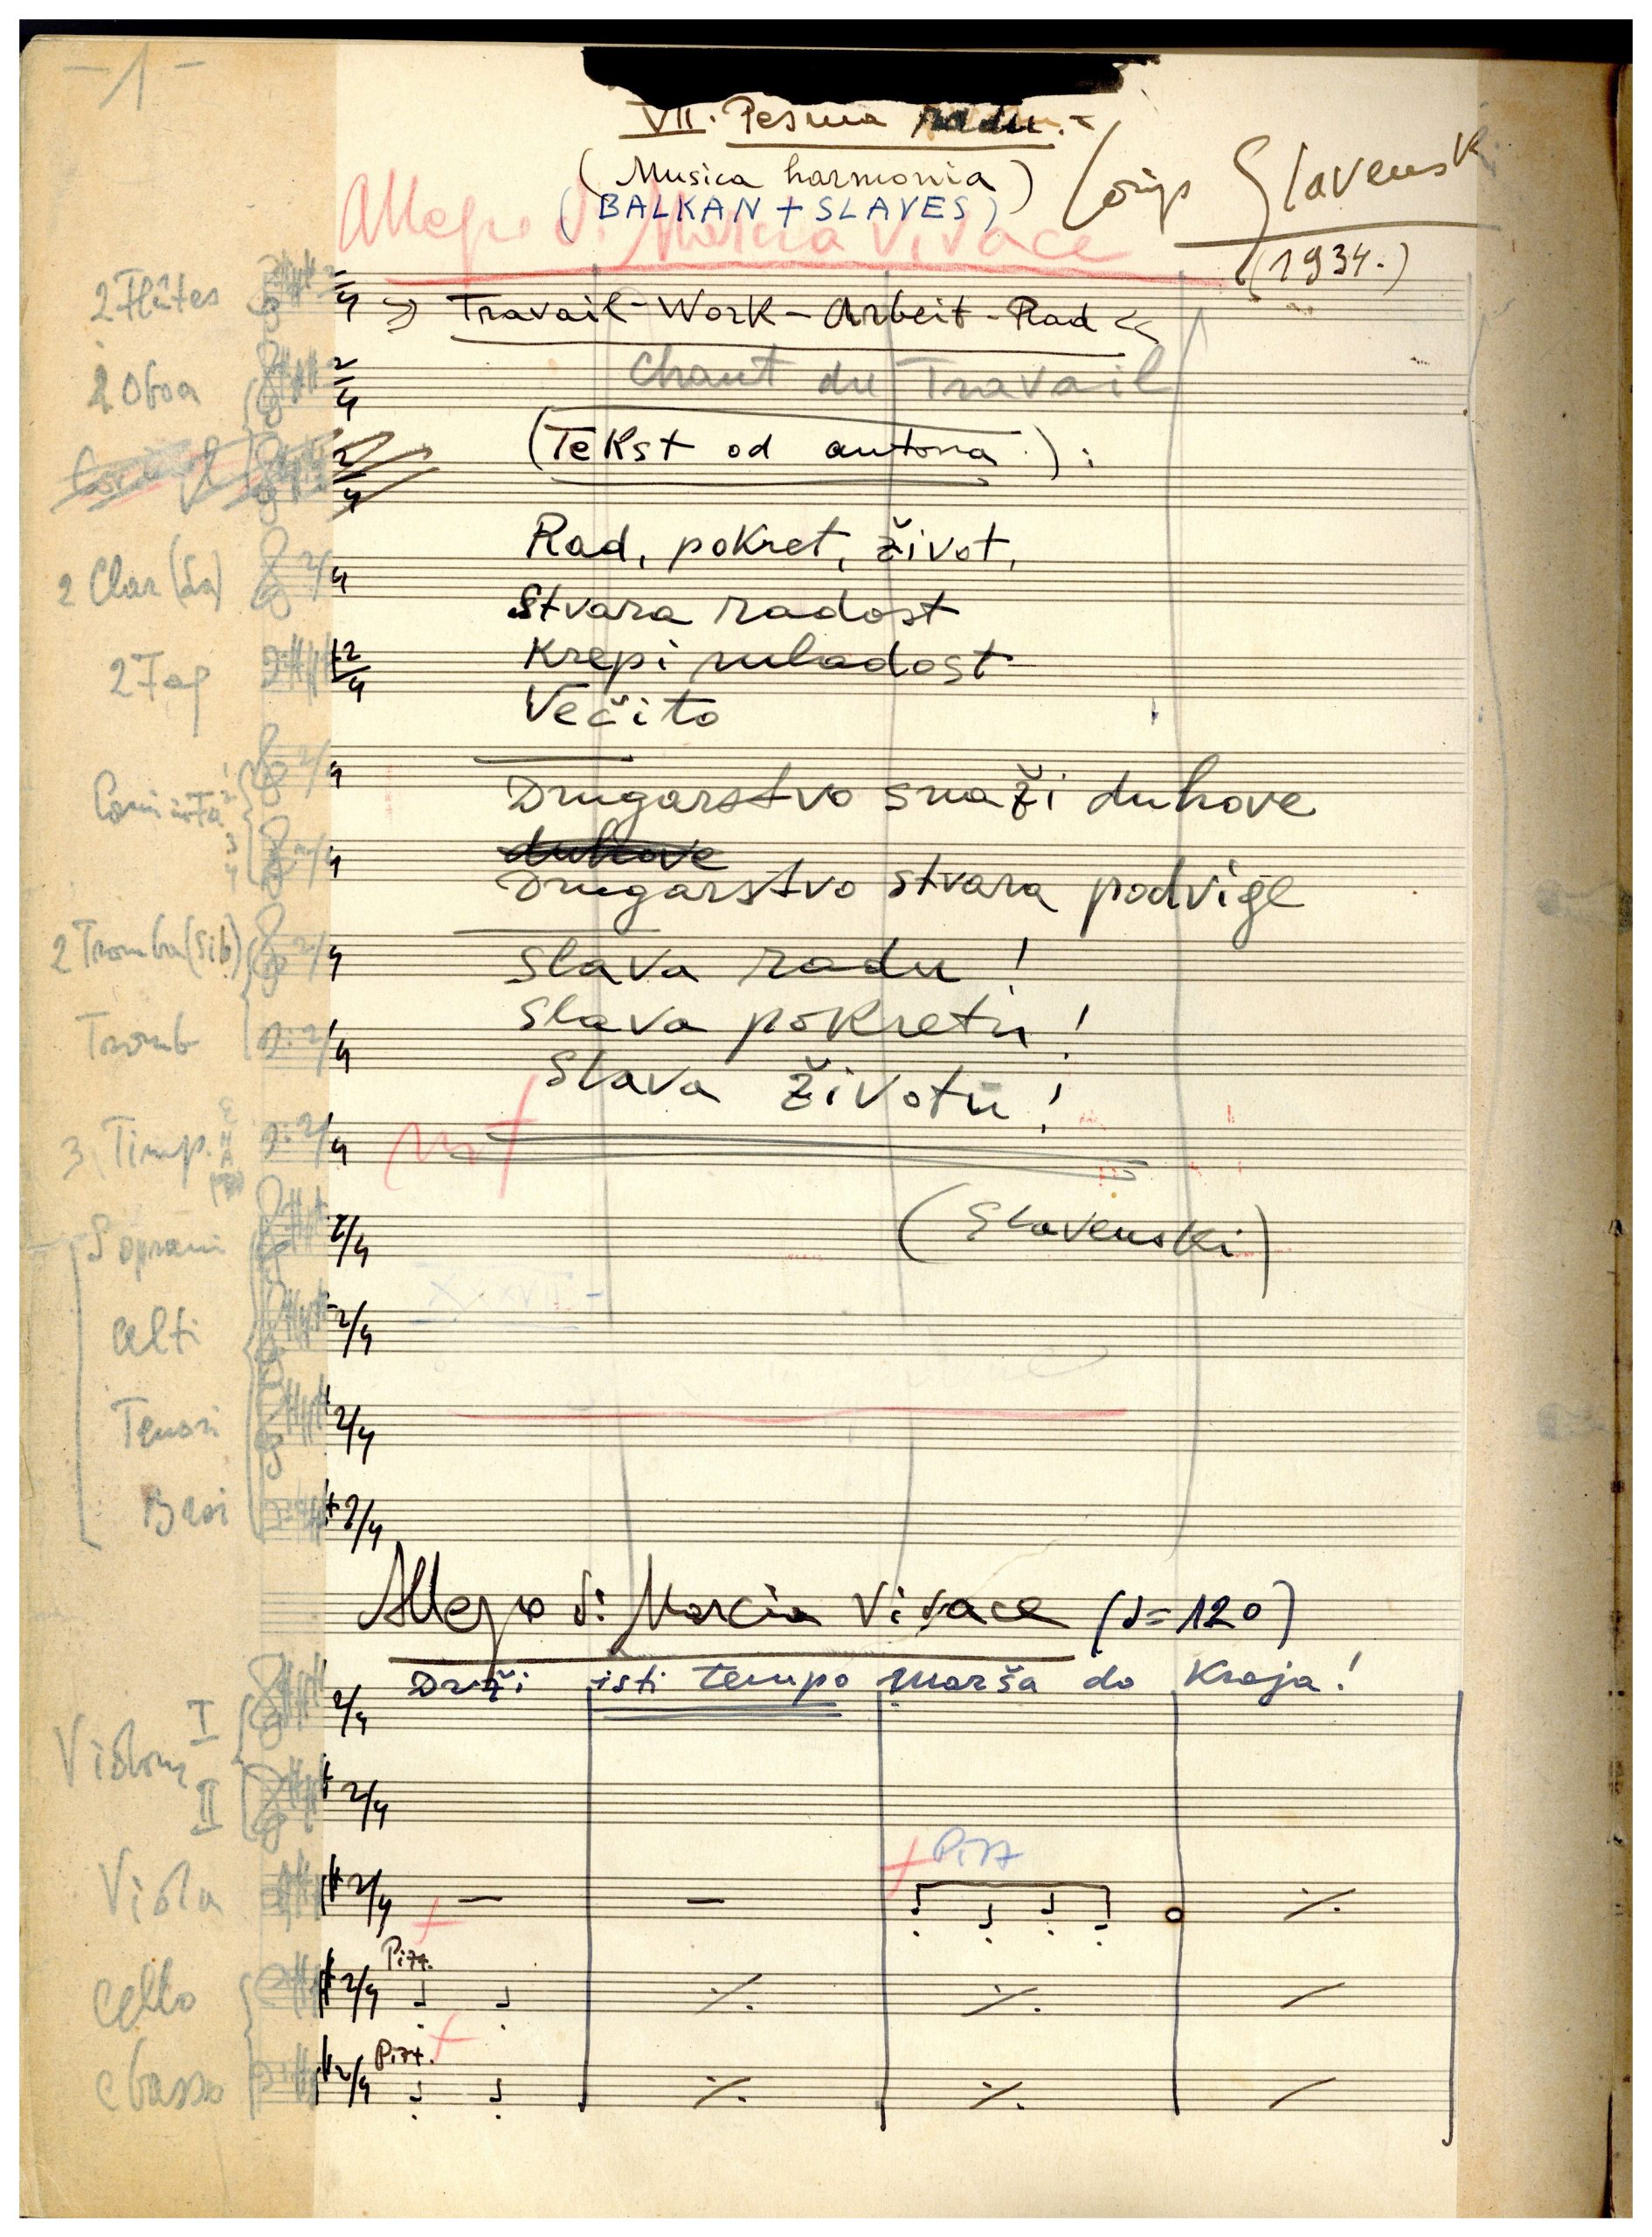 - 1 -
VII. Pesma radu.-
(Musica harmonia)
(BALKAN + SLAVES)
Josip Slavenski
(1934.)
Allegro di Marcia Vivace
2 Flûtes
» Travail-Work-Arbeit-Rad «
Chant du Travail
2 Oboa
(Tekst od autora.):
Rad, pokret, život,
2 Clar (La)
Stvara radost
Krepi mladost
2 Fag
Večito
Drugarstvo snaži duhove
1 2
3 4
duhove
Drugarstvo stvara podvige
2 Tromba (Sib)
Slava radu!
Slava pokretu!
Tromb
Slava životu!
3 Timp.
Soprani
(Slavenski)
XXXVII-
Alti
Tenori
Basi
Allegro di Marcia Vivace (♩=120)
Drži isti tempo marša do kraja!
Violini I
II
Viola
Pizz
Cello
Pizz.
C basso
Pizz.